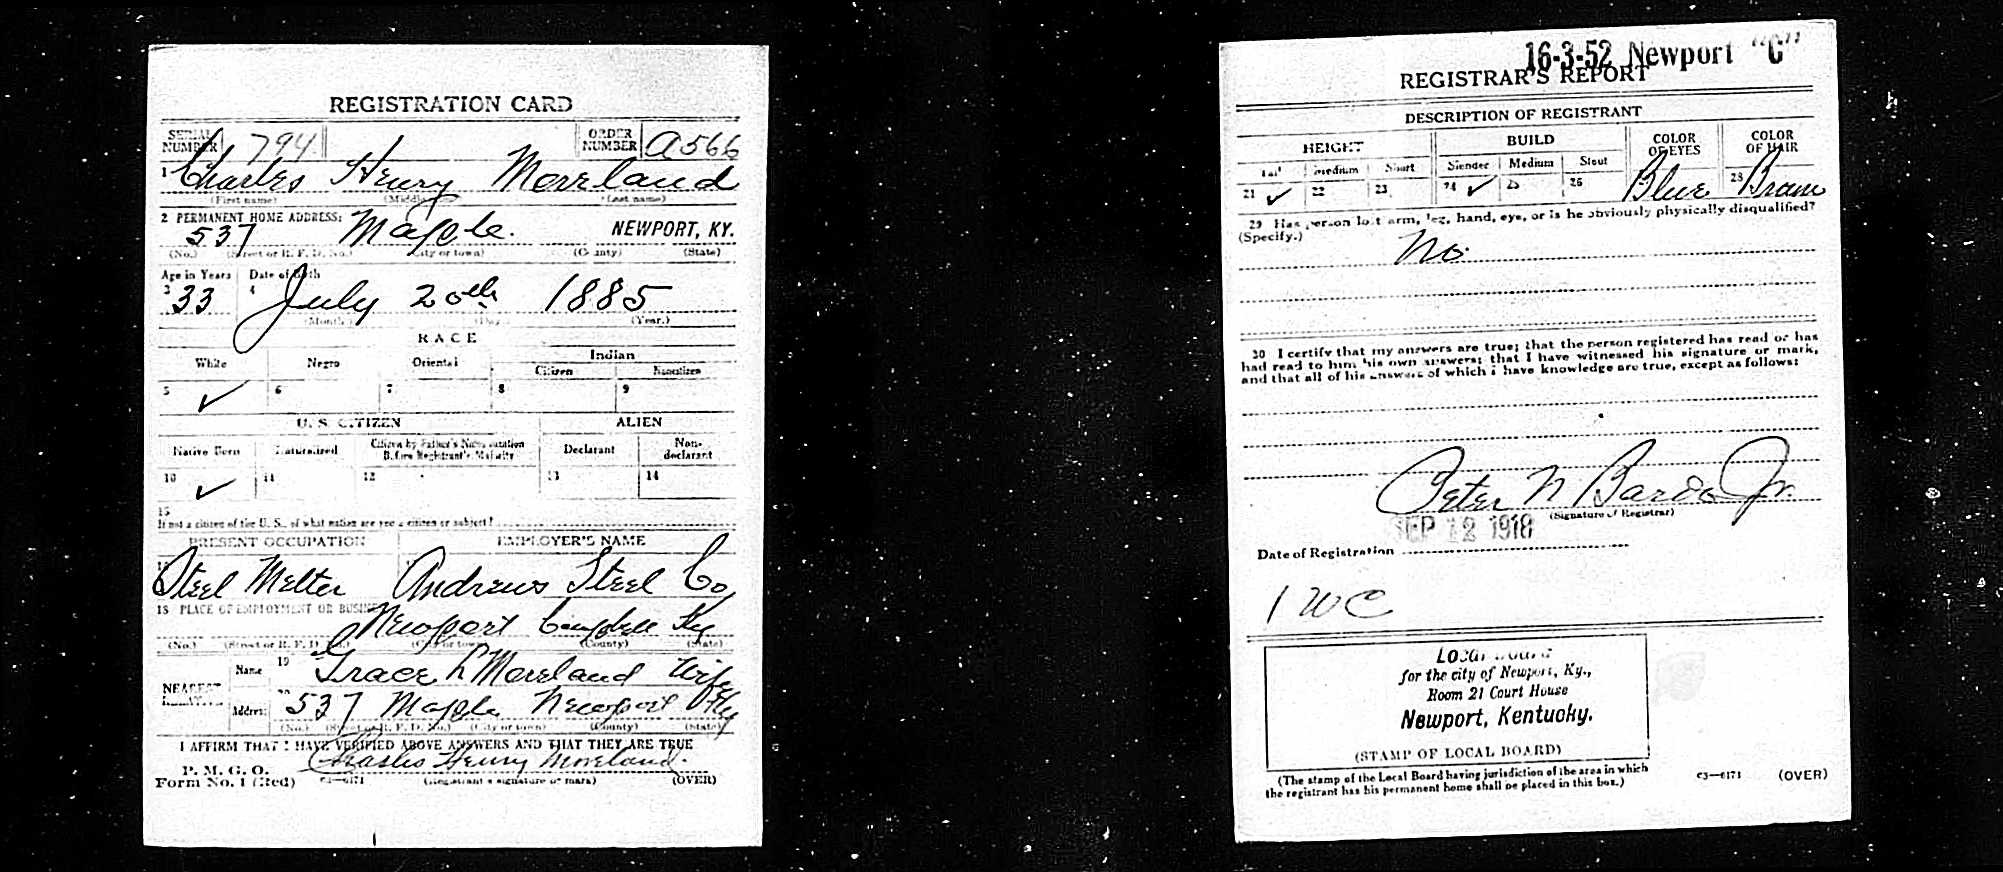 REGISTRATION CARD
SERIAL NUMBER 794 ORDER NUMBER A566
1 Charles Henry Moreland
(First name) (Middle) (Last name)
2 PERMANENT HOME ADDRESS:
537 Maple. NEWPORT, KY.
(No.) (Street or R. F. D. No.) (City or town) (County) (State)
Age in Years Date of Birth
3 33 4 July 20th 1885
(Month) (Day) (Year.)
RACE
White Negro Oriental Indian
Citizen Noncitizen
5 ✓ 6 7 8 9
U. S. CITIZEN ALIEN
Native Born Naturalized Citizen by Father's Naturalization Before Registrant's Majority Declarant Non-declarant
10 ✓ 11 12 13 14
15
If not a citizen of the U. S., of what nation are you a citizen or subject?
PRESENT OCCUPATION EMPLOYER'S NAME
Steel Melter Andrews Steel Co
18 PLACE OF EMPLOYMENT OR BUSINESS
Newport Campbell Ky
(No.) (Street or R. F. D. No.) (City or town) (County) (State)
NEAREST RELATIVE
Name 19 Grace L Moreland Wife
Address 20 537 Maple Newport Ky
(No.) (Street or R. F. D. No.) (City or town) (County) (State)
I AFFIRM THAT I HAVE VERIFIED ABOVE ANSWERS AND THAT THEY ARE TRUE
P. M. G. O.
Form No. 1 (Red) Charles Henry Moreland.
C3—6171 (Registrant's signature or mark) (OVER)
16-3-52 Newport "C"
REGISTRAR'S REPORT
DESCRIPTION OF REGISTRANT
HEIGHT BUILD COLOR OF EYES COLOR OF HAIR
Tall Medium Short Slender Medium Stout
21 ✓ 22 23 24 ✓ 25 26 Blue 28 Brown
29 Has person lost arm, leg, hand, eye, or is he obviously physically disqualified?
(Specify.) No
30 I certify that my answers are true; that the person registered has read or has
had read to him his own answers; that I have witnessed his signature or mark,
and that all of his answers of which I have knowledge are true, except as follows:
Peter N Bardo Jr.
(Signature of Registrar)
SEP 12 1918
Date of Registration
1 WC
Local Board
for the city of Newport, Ky.,
Room 21 Court House
Newport, Kentucky.
(STAMP OF LOCAL BOARD)
(The stamp of the Local Board having jurisdiction of the area in which
the registrant has his permanent home shall be placed in this box.)
C3—6171 (OVER)